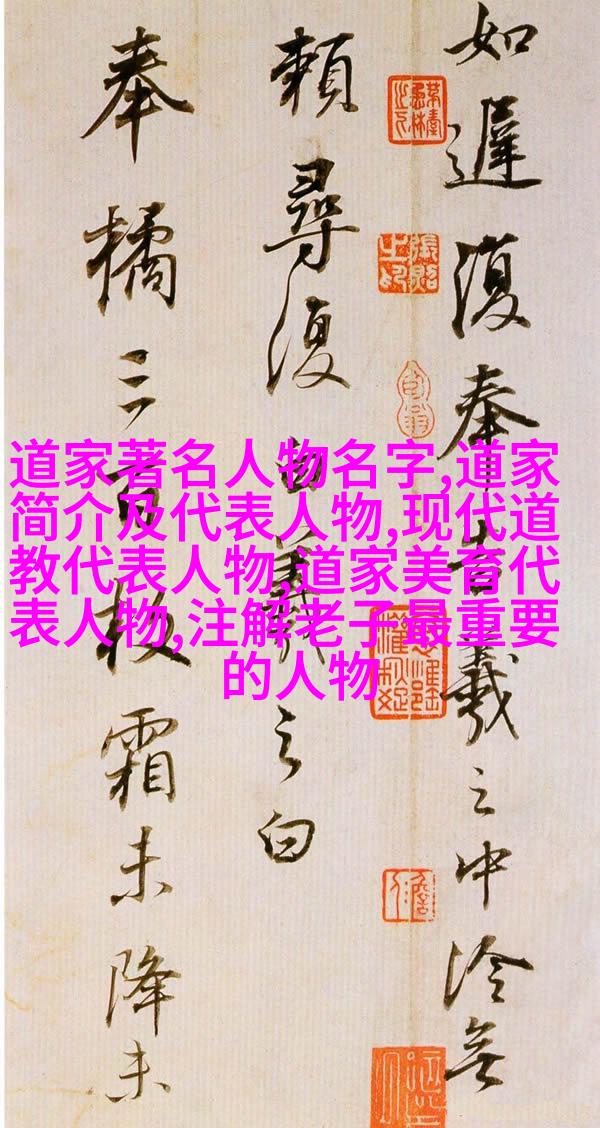 如遲復奉告羲之中冷無
賴尋復白羲之白
奉橘三百枚霜未降未
道家著名人物名字,道家
简介及代表人物,现代道
教代表人物,道家美育代
表人物,注解老子最重要
的人物